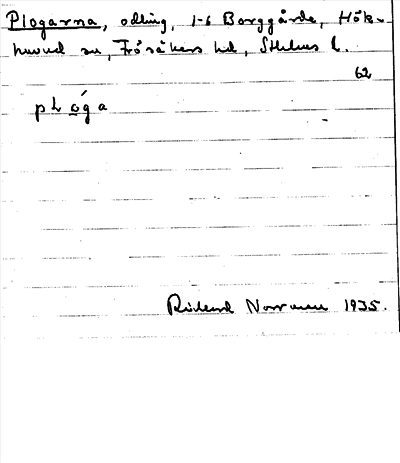 Plogarna, odling, 1-6 Borggårde, Hök-
huvud sn, Frösåkers hd, Sthlms l.
62
pƚó̲ga
Rickard Norrman 1935.